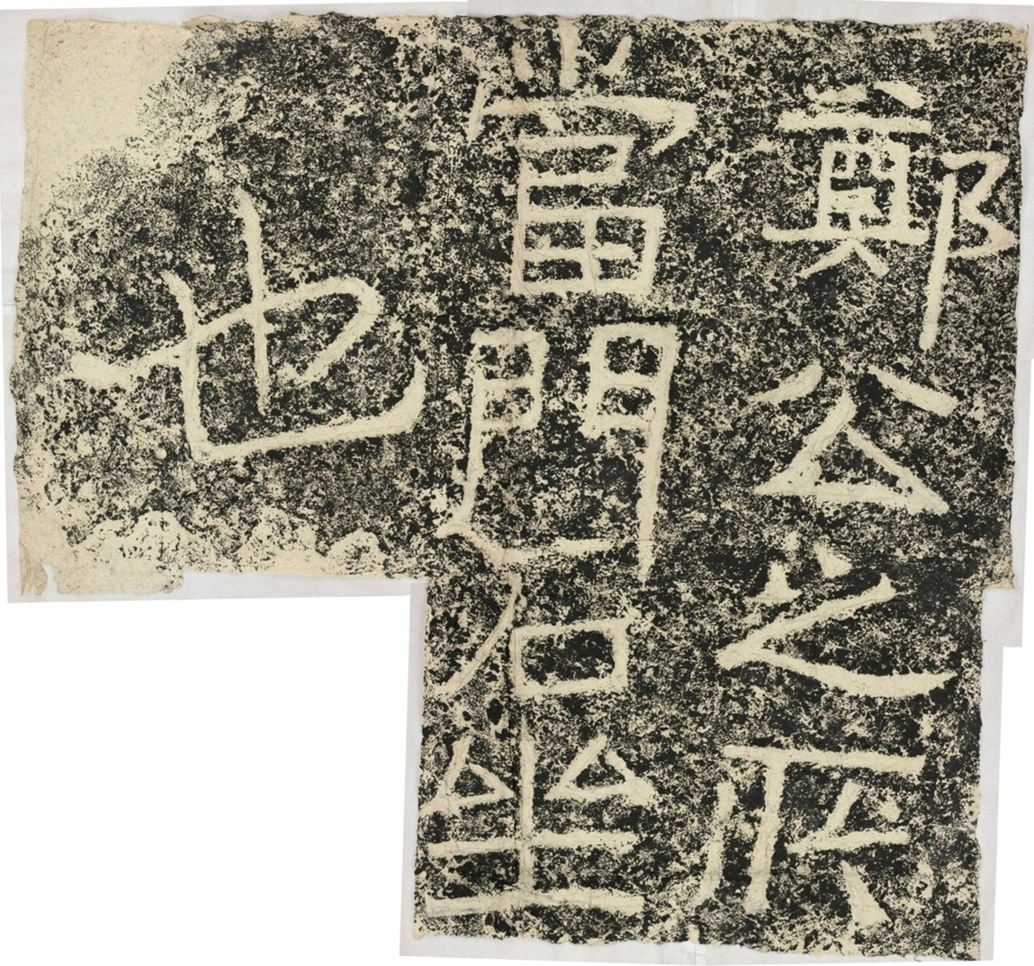 鄭公之所
當門石坐
也